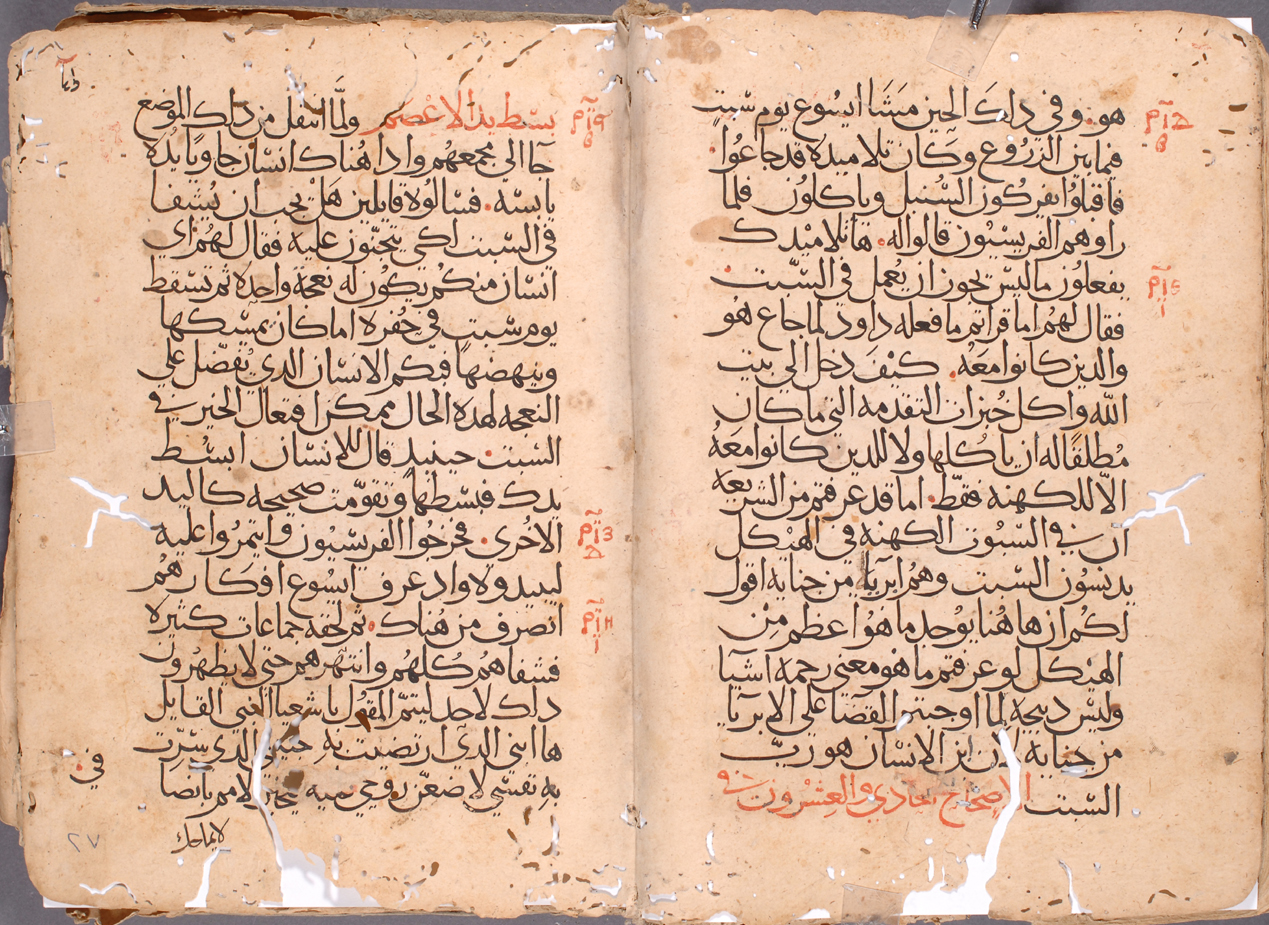 هو. وفي داك الحين مشا ايسوع يوم سبت
فيما بين الزروع وكان تلاميده قد جاعوا.
فاقبلوا يفركون السنبل وياكلون فلما
راوهم الفريسيون قالوا له. ها تلاميدك
يفعلون ما ليس يجوز ان يعمل في السبت
فقال لهم اما قراتم ما فعله داود لما جاع هو
والدين كانوا معه. كيف دخل الى بيت
الله واكل خبزات التقدمه التي ما كان
مطلقا له ان ياكلها ولا للدين كانوا معه
الا للكهنه فقط. اما قد عرفتم من الشريعه
ان في السبوت الكهنه في الهيكل
يدنسون السبت وهم ابريا من جنايه اقول
لكم ان هاهنا يوجد ما هوا عظم من
الهيكل لو عرفتم ما هو معنى رحمه اشيا
وليس دبيحه لما اوجبتم القضا على الابريا
من جنايه لان ابن الانسان هو رب
السبت الاصحاح الحادي والعشرون في
بسط يد الاعصم ولما انتقل من دلك الموضع
جا الي مجمعهم وادا هناك انسان جا ويا يده
يابسه. فسالوه قايلين هل يجب ان يشفا
في السبت لكي يتجنون عليه فقال لهم اي
انسان منكم يكون له نعجه واحده ثم تسقط
يوم سبت في حفره اما كان يمسكها
وينهضها فبكم الانسان الدي يفضل علي
النعجه لهده الحال ممكن افتعال الخير في
السبت. حينيد قال للانسان ابسط
يدك فبسطها وتقومت صحيحه كاليد
الاخرى. فخرجوا الفريسيون وايتمروا عليه
ليبيدوه واد عرف ايسوع افكارهم
انصرف من هناك. ثم لحقه جماعات كثيره
فشفاهم كلهم وانتهرهم حتى لا يظهرون
داك لاجل ليتم المقول باشعيا النبي القايل
ها ابني الدي ارتضيت به حبيبي الدي سرت
به نفسي لاضعن روحي عليه يخبر الامم بانصا
في
٢٧